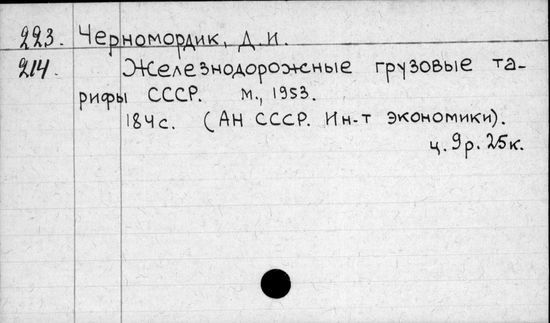 223. Черномордик, Д.И.
214. Железнодорожные грузовые та-
рифы СССР. М., 1953.
184с. (АН СССР. Ин-т экономики).
ц. 9р. 25к.